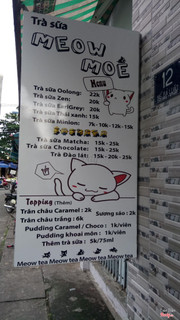 Trà sữa
MEOW
MOE
Menu
Trà sữa Oolong: 22k
Trà sữa Zen: 20k
Trà sữa EarlGrey: 20k
Trà sữa Thái xanh: 15k
Trà sữa Minion: 7k - 10k - 12k - 15k
Trà sữa Matcha: 15k - 25k
Trà sữa Chocolate: 15k - 25k
Trà Đào lát: 15k - 20k - 25k
Topping (Thêm)
Trân châu Caramel : 2k Sương sáo : 2k
Trân châu trắng : 6k
Pudding Caramel / Choco : 1k/viên
Pudding khoai môn : 1k/viên
Thêm trà sữa : 5k/75ml
Meow tea Meow tea Meow tea Meow tea
12